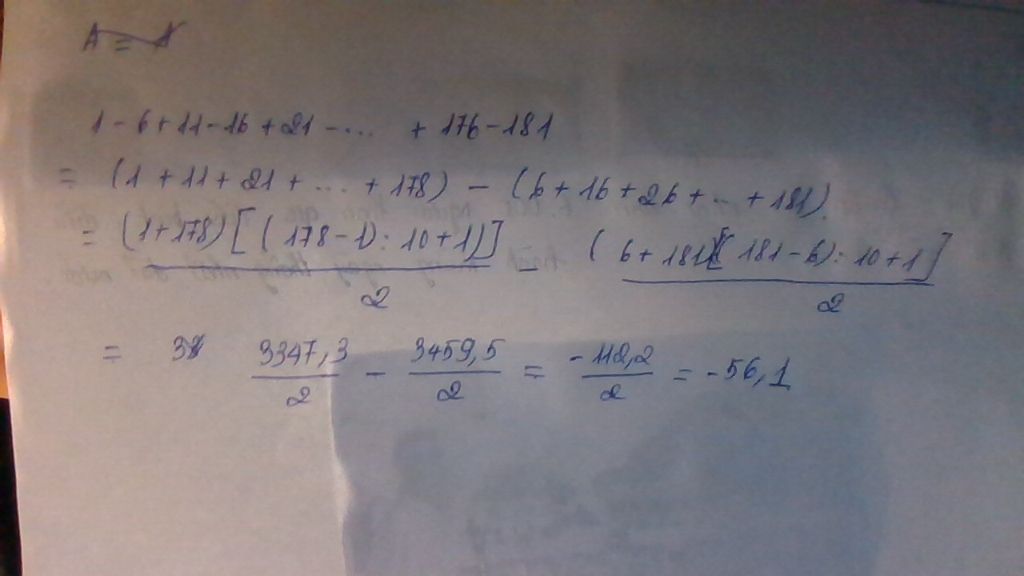 A = A
1 - 6 + 11 - 16 + 21 - .... + 176 - 181
= (1 + 11 + 21 + ... + 178) - (6 + 16 + 26 + ... + 181)
= (1+178)[(178-1):10+1)] / 2 - (6+181)[(181-6):10+1] / 2
= 3347,3 / 2 - 3459,5 / 2 = -112,2 / 2 = -56,1